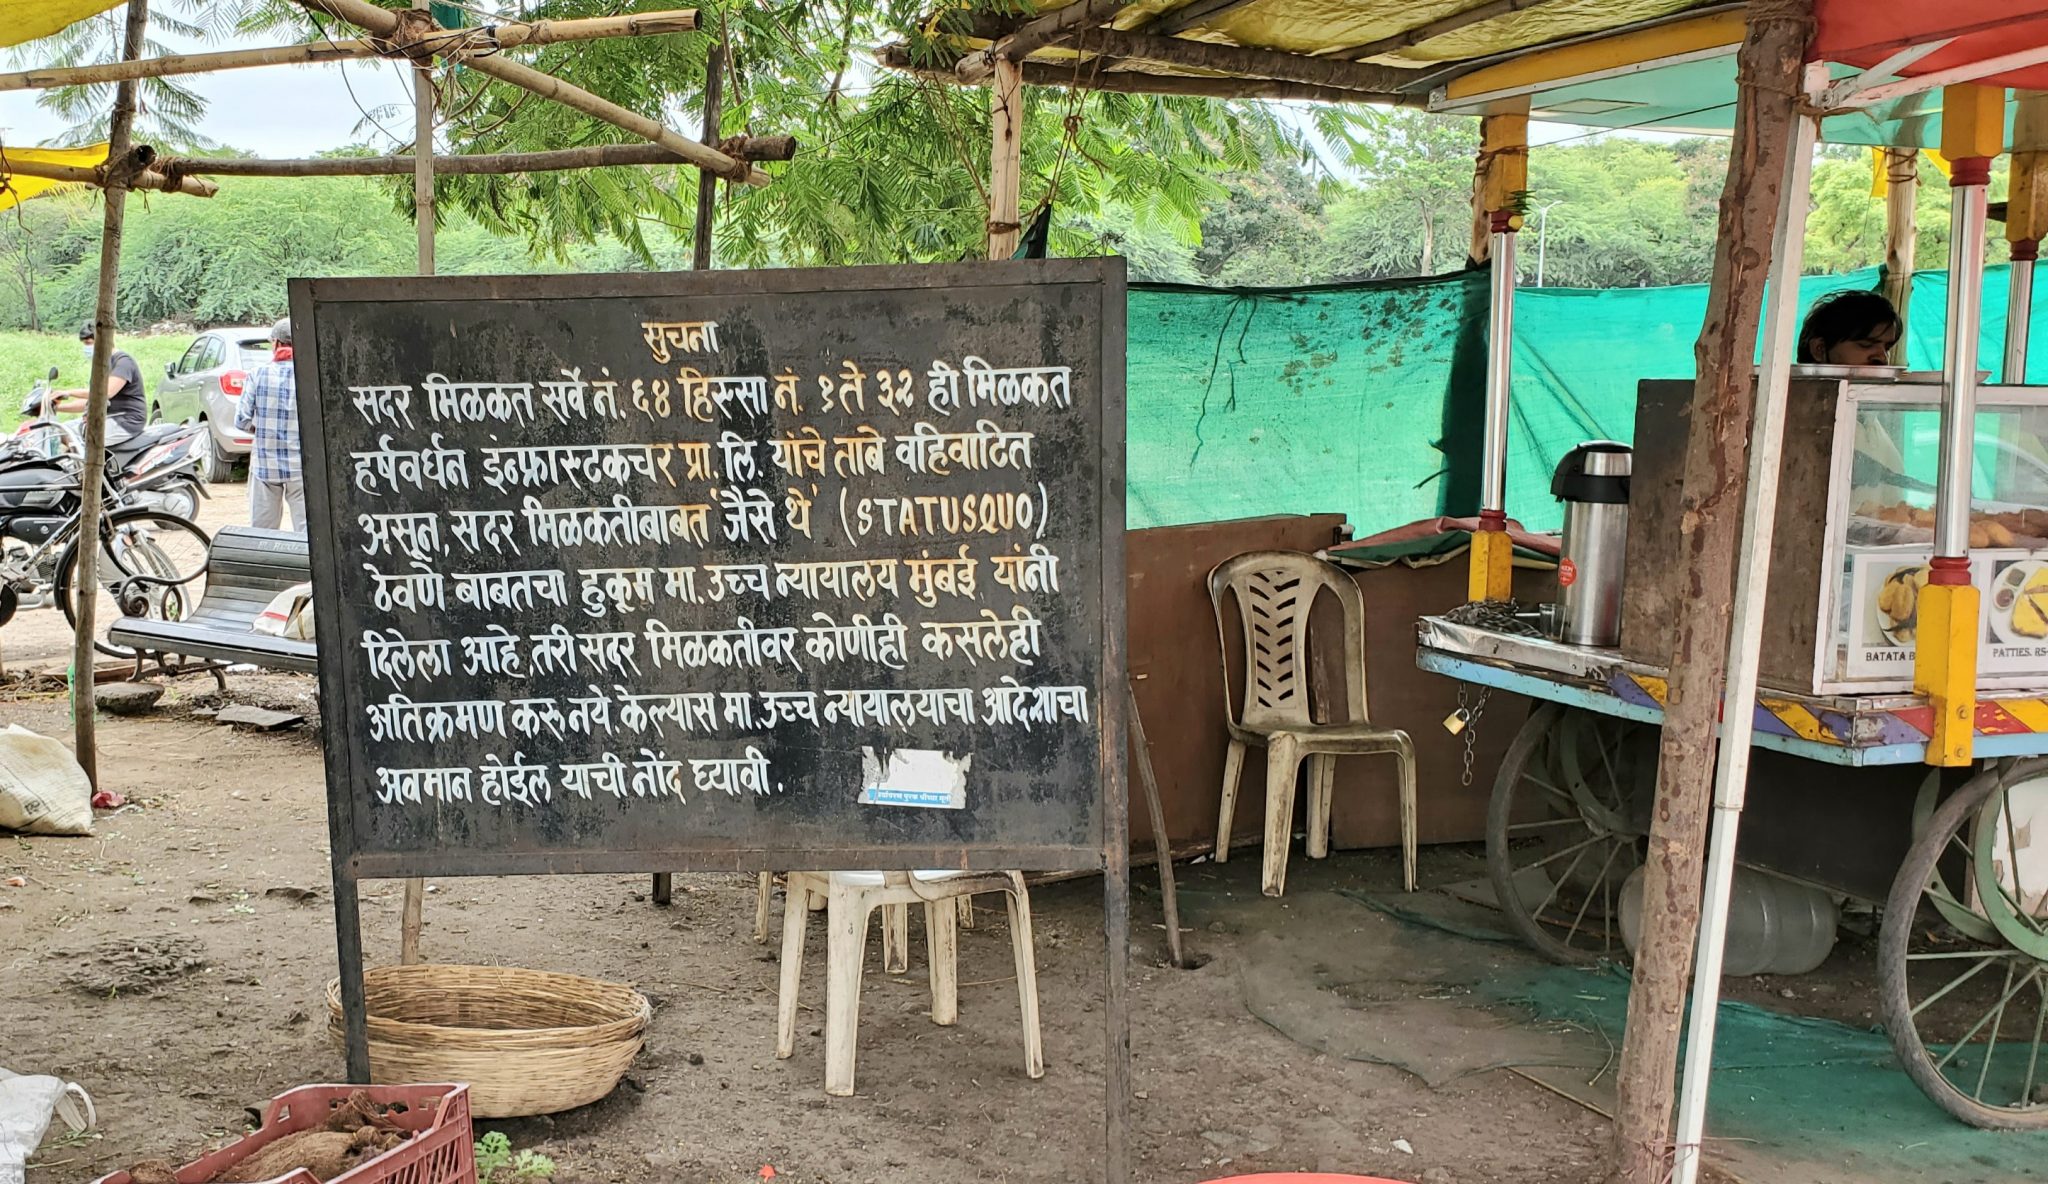 सुचना
सदर मिळकत सर्वे नं. ६४ हिस्सा नं. १ ते ३२ ही मिळकत
हर्षवर्धन इंन्फ्रास्टकचर प्रा. लि. यांचे ताबे वहिवाटित
असून, सदर मिळकतीबाबत 'जैसे थे' (STATUSQUO)
ठेवणे बाबतचा हुकूम मा. उच्च न्यायालय मुंबई यांनी
दिलेला आहे. तरी सदर मिळकतीवर कोणीही कसलेही
अतिक्रमण करू नये. केल्यास मा. उच्च न्यायालयाचा आदेशाचा
अवमान होईल याची नोंद घ्यावी.
BATATA B
PATTIES. RS